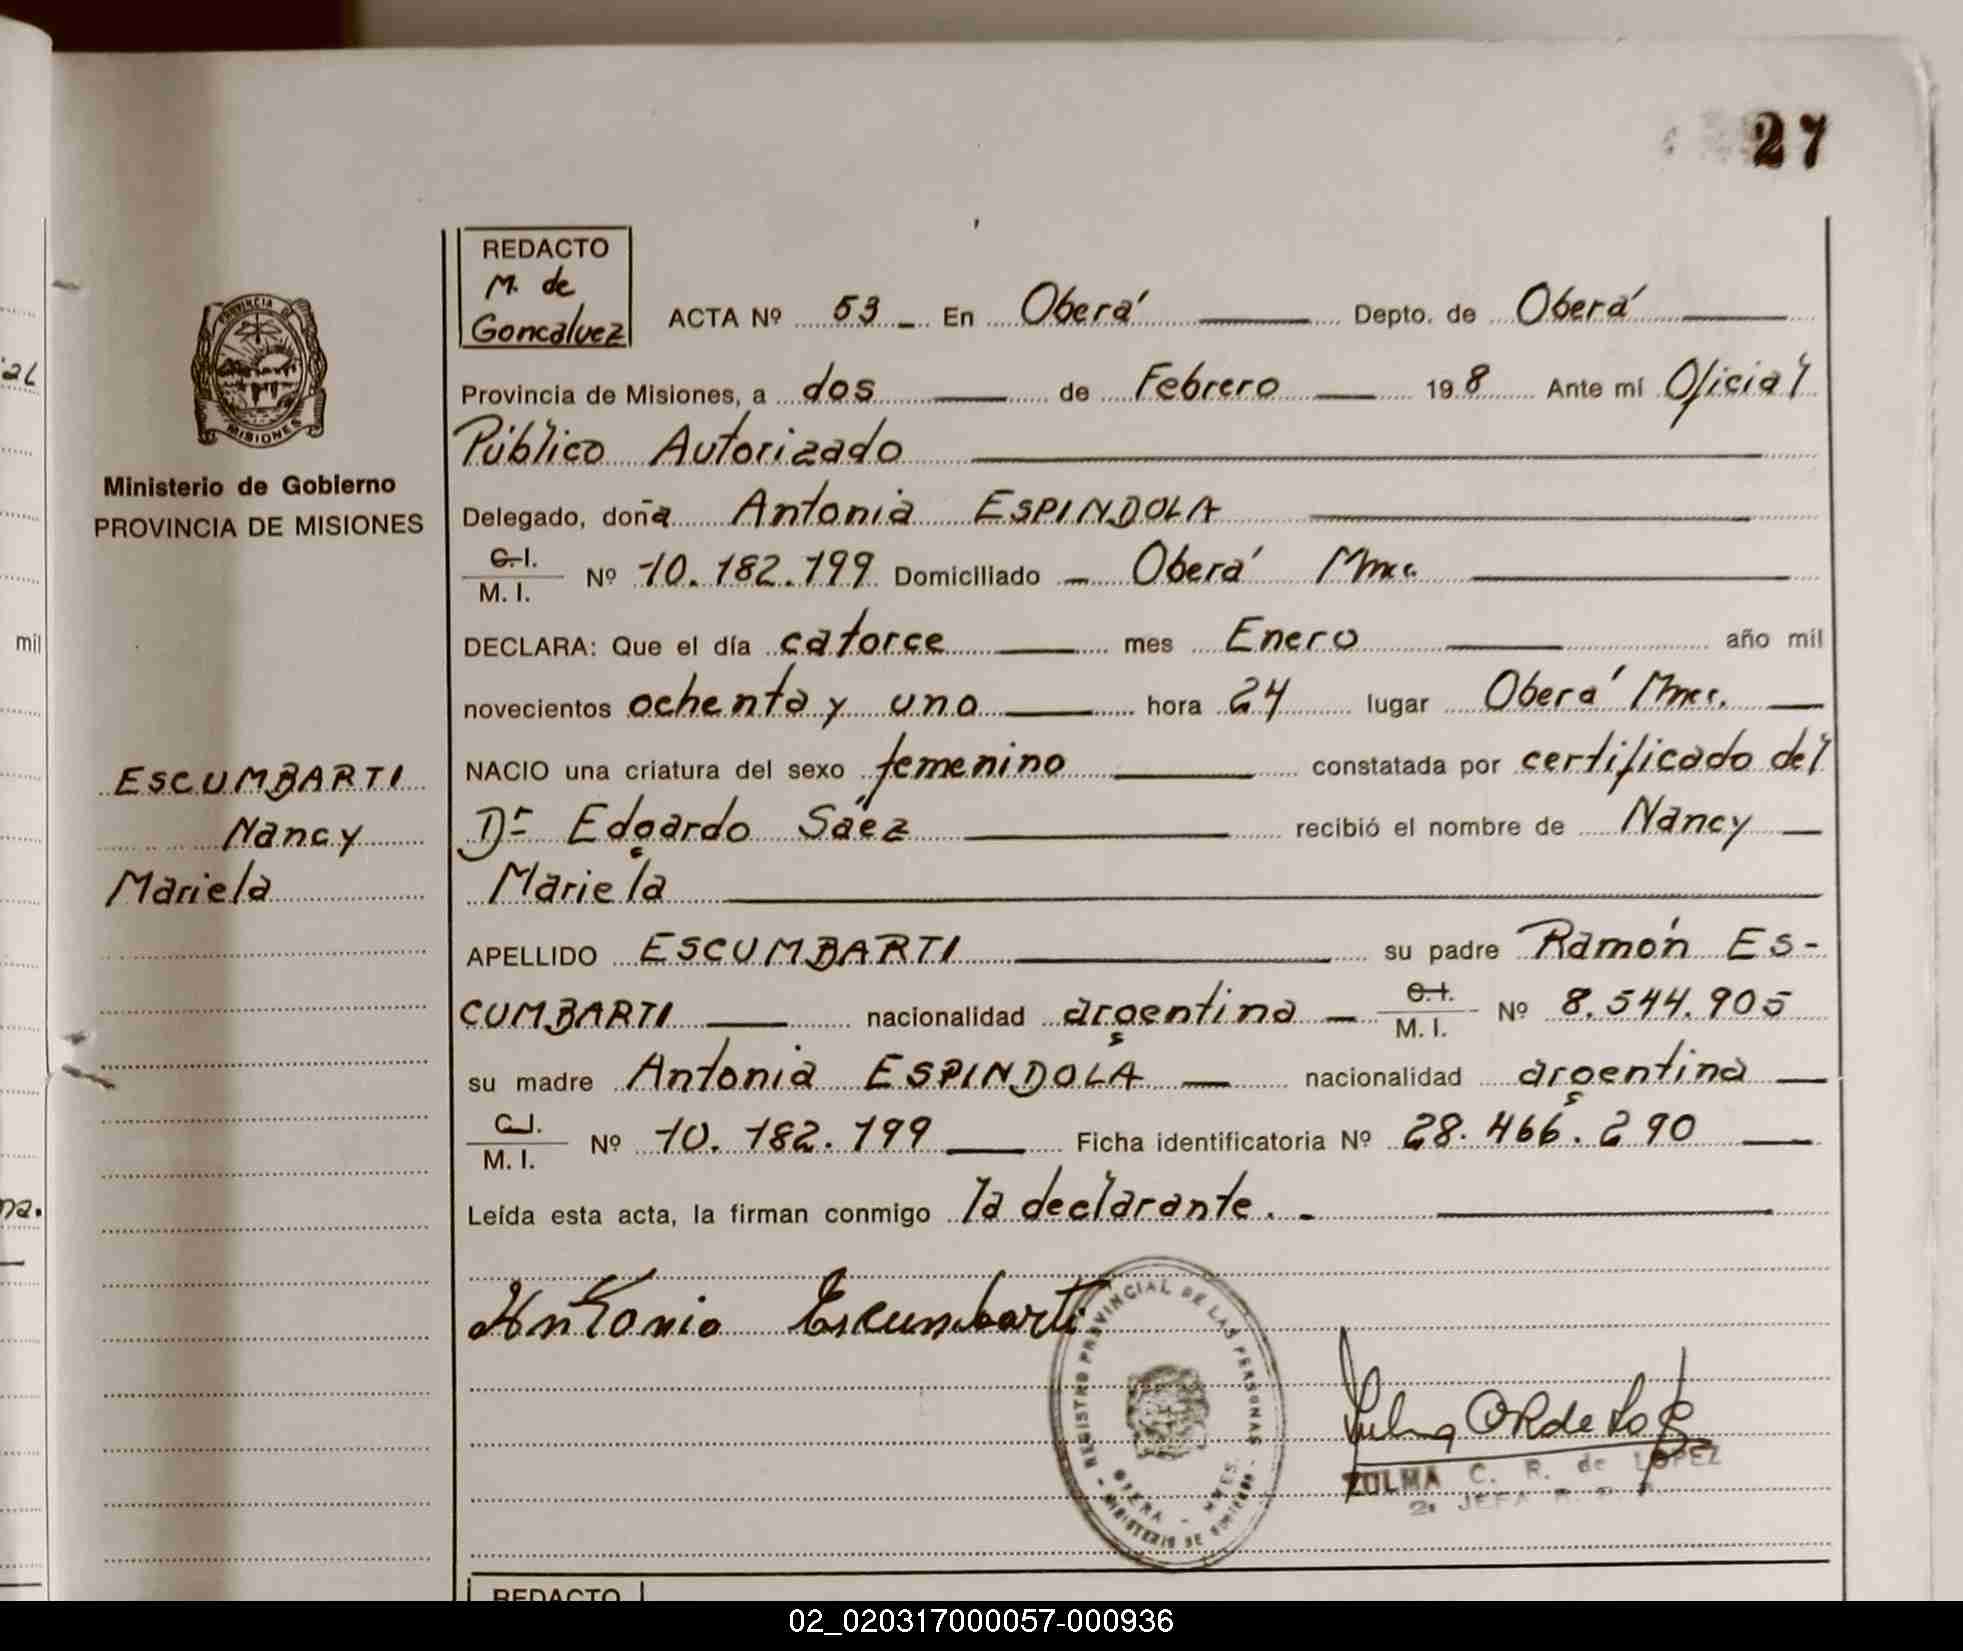 27
REDACTO
M. de
Goncalvez
ACTA Nº 53 En Oberá Depto. de Oberá
Provincia de Misiones, a dos de Febrero 198 Ante mí Oficial
Público Autorizado
Ministerio de Gobierno
PROVINCIA DE MISIONES
Delegado, doña Antonia ESPINDOLA
C.I.
M. I. Nº 10.182.199 Domiciliado Oberá Mnes.
DECLARA: Que el día catorce mes Enero año mil
novecientos ochenta y uno hora 24 lugar Oberá Mnes.
ESCUMBARTI
Nancy
Mariela
NACIO una criatura del sexo femenino constatada por certificado del
Dr Edgardo Sáez recibió el nombre de Nancy
Mariela
APELLIDO ESCUMBARTI su padre Ramón ES-
CUMBARTI nacionalidad argentina C.I. M. I. Nº 8.544.905
su madre Antonia ESPINDOLA nacionalidad argentina
C.I.
M. I. Nº 10.182.199 Ficha identificatoria Nº 28.466.290
Leída esta acta, la firman conmigo la declarante.
Antonia Escumbarti
REGISTRO PROVINCIAL DE LAS PERSONAS
OBERA - MNES.
MINISTERIO DE GOBIERNO
ZULMA C. R. de LOPEZ
2ª JEFA R. P. P.
REDACTO
mil
02_020317000057-000936